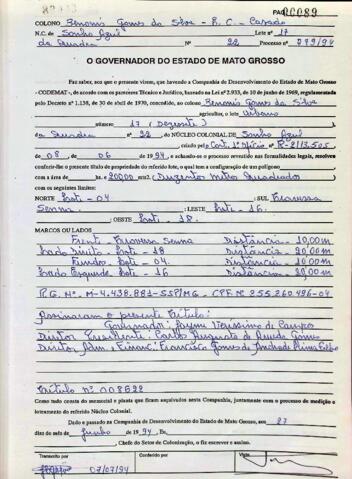 PAG 0089
COLONO Benomis Gomes da Silva - R.C. - Casado
N.C. de Sonho Azul Lote nº 17
da Quadra Nº 22 Processo nº 799/94
O GOVERNADOR DO ESTADO DE MATO GROSSO
Faz saber, aos que o presente virem, que havendo a Companhia de Desenvolvimento do Estado de Mato Grosso
- CODEMAT -, de acordo com os pareceres Técnico e Jurídico, baseado na Lei nº 2.933, de 10 de junho de 1969, regulamentada
pelo Decreto nº 1.138, de 30 de abril de 1970, concedido, ao colono Benomis Gomes da Silva
agricultor, o lote Urbano
número 17 (Dezesete)
da Quadra nº 22, do NÚCLEO COLONIAL DE Sonho Azul
criado pelo Cart. 1º Ofício nº R-2/13.505
de 08 de 06 de 1994, e achando-se o processo revestido das formalidades legais, resolveu
conferir-lhe o presente título de propriedade do referido lote, o qual tem a configuração de um polígono
com a área de hs. 200,00 m2. (Duzentos Metros Quadrados)
com os seguintes limites:
NORTE Lote - 04 : SUL Travessa
Senna : LESTE Lote - 16
: OESTE Lote - 18
MARCOS OU LADOS
Frente - Travessa Senna Distância - 10,00m
Lado Direito - Lote - 18 Distância - 20,00m
Fundos - Lote - 04 Distância - 10,00m
Lado Esquerdo - Lote - 16 Distância - 20,00m
R.G. Nº M-4.438.881-SSP/MG - CPF Nº 255.260.496-04
Assinaram o presente Título:
Governador: Jayme Veríssimo de Campos
Diretor Presidente: Carlos Augusto de Gomes
Diretor Adm. e Financ.: Francisco Gomes de Andrade Lima Filho
Título nº 008628
Tudo como consta do memorial e planta que ficam arquivados nesta Companhia, juntamente com o processo de medição e
loteamento do referido Núcleo Colonial.
Dado e passado na Companhia de Desenvolvimento do Estado de Mato Grosso, aos 27
dias do mês de Junho de 1994, Eu,
Chefe do Setor de Colonização, o fiz escrever e assino.
Transcrito por Conferido por Visto
07/07/94